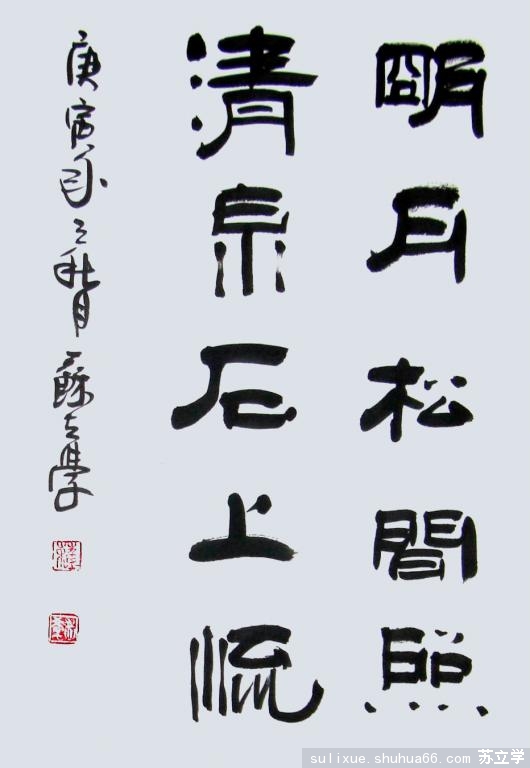 明月松間照
清泉石上流
庚寅年之秋月蘇立學
sulixue.shuhua66.com 苏立学